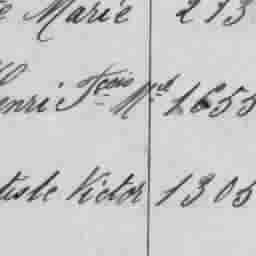 e Marie 213
Henri Fçois Md 1655
tiste Victor 1305